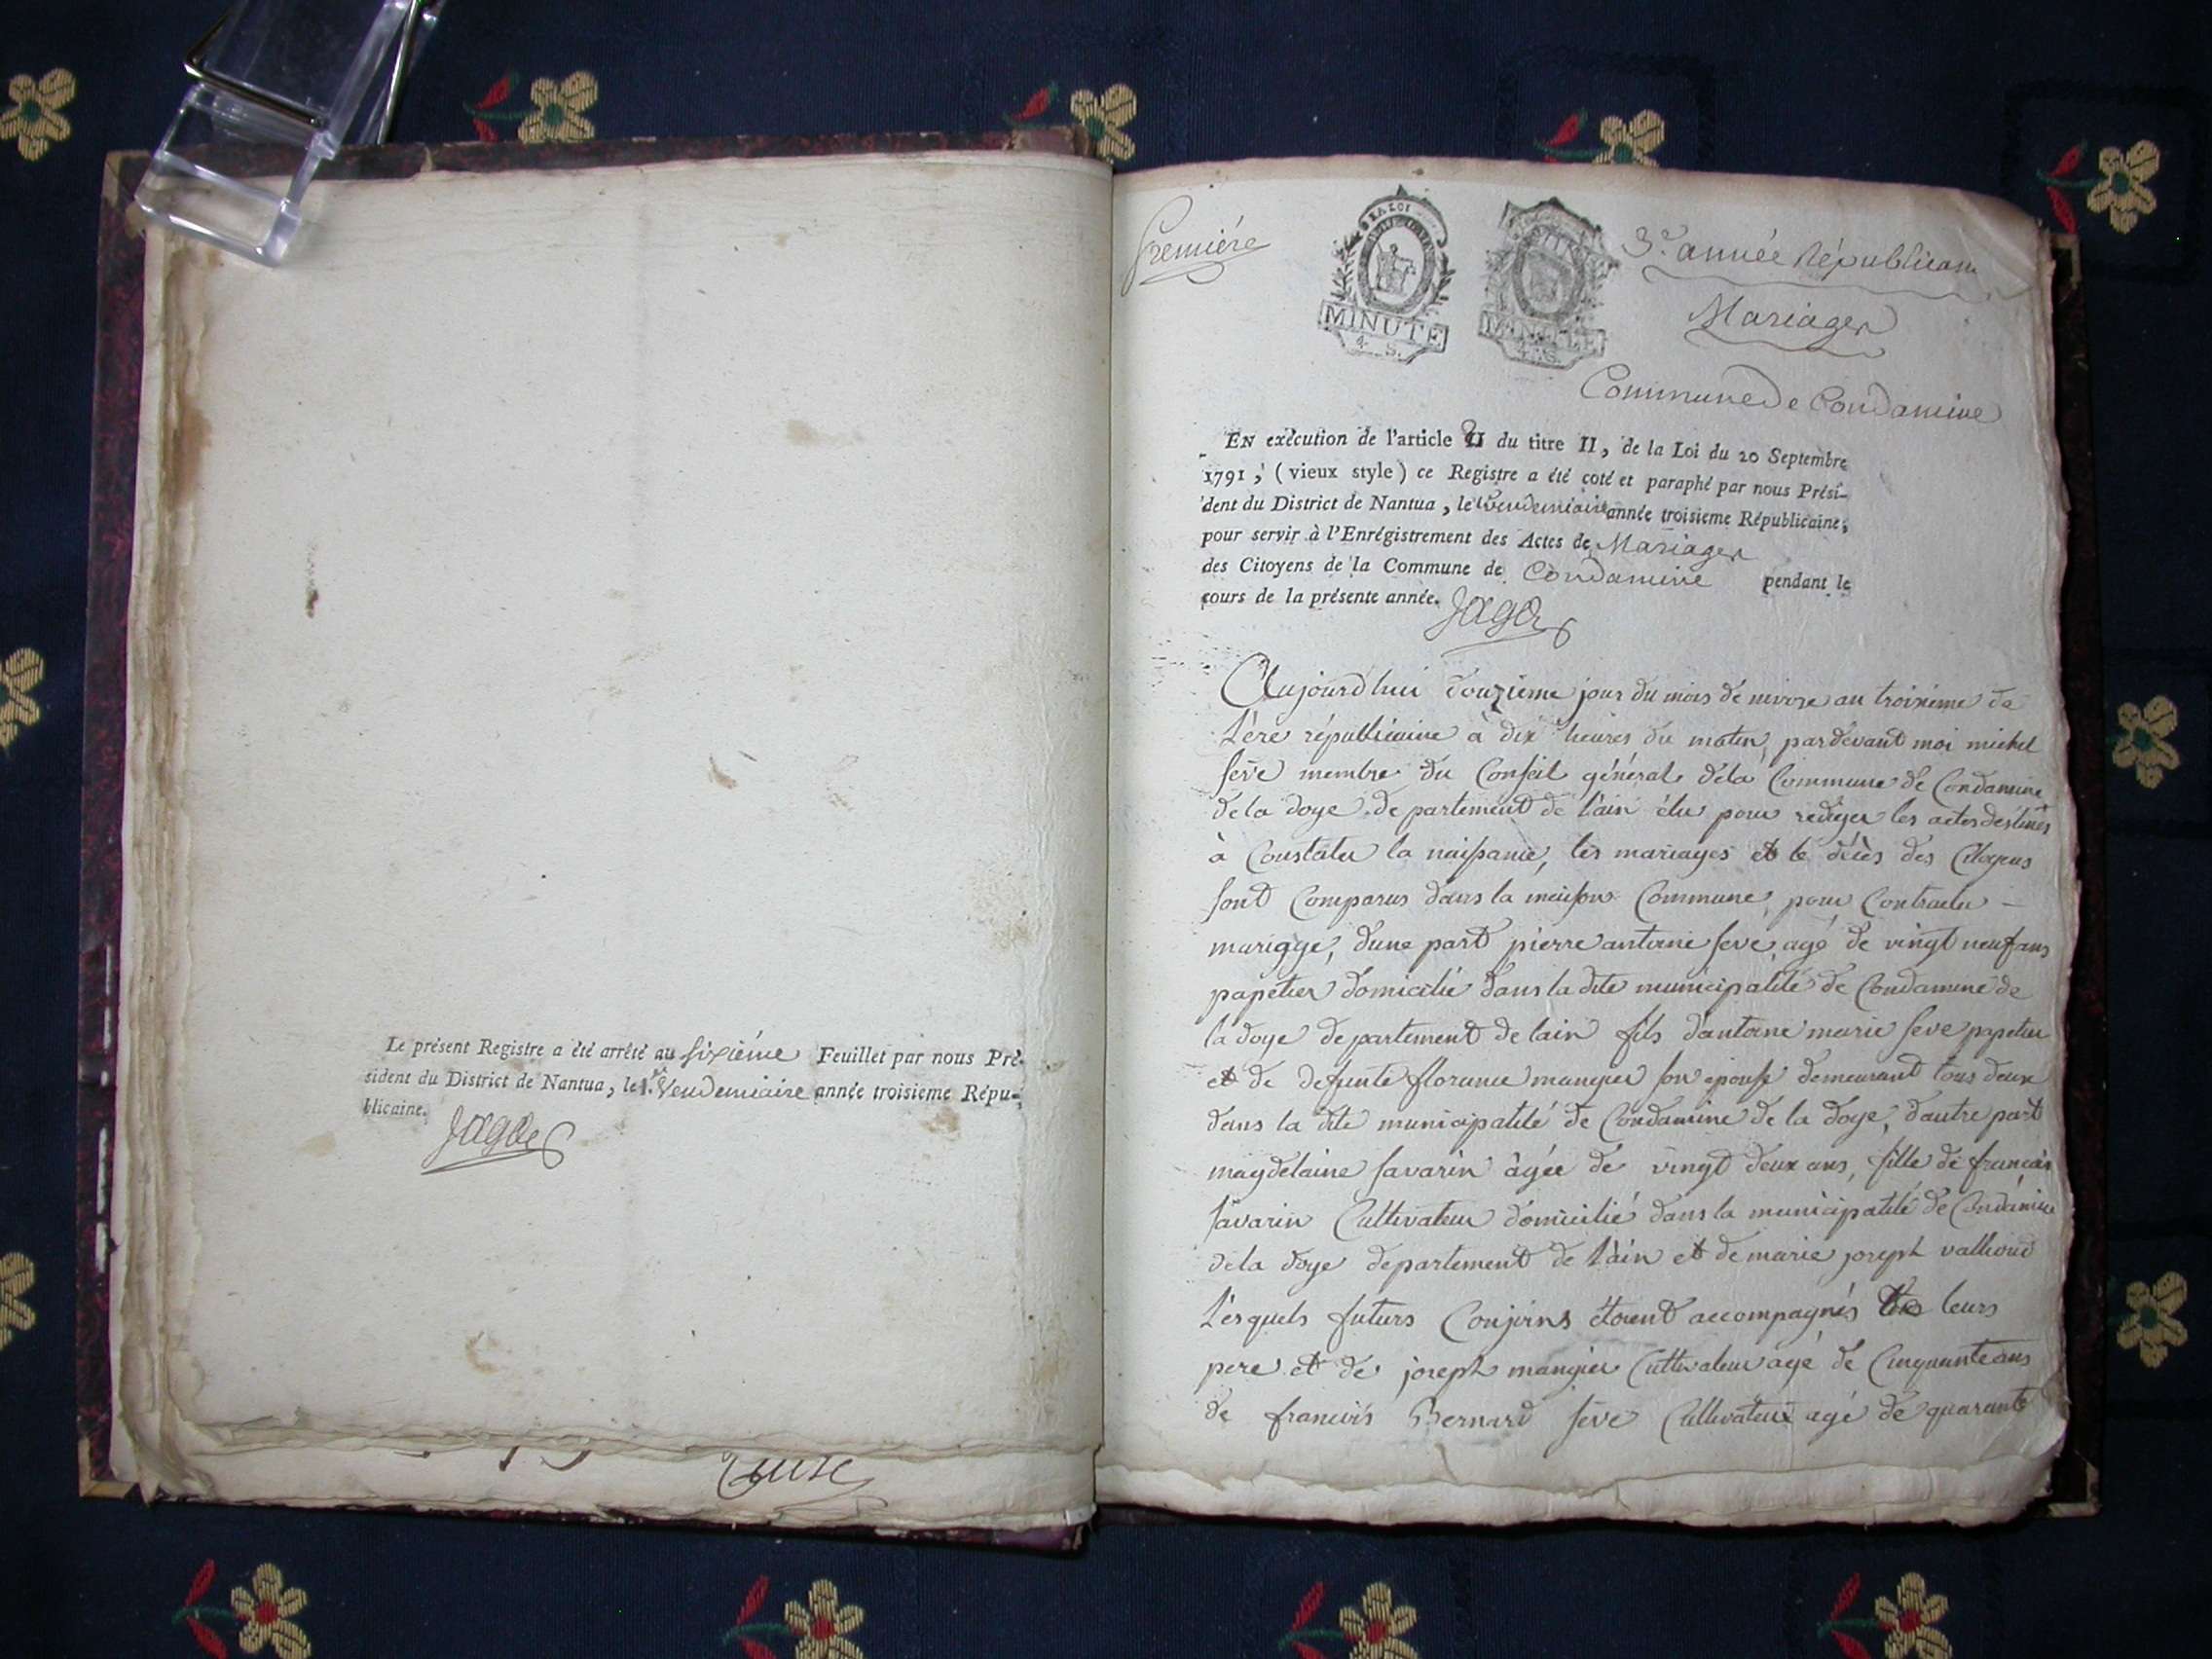 Le présent Registre a été arrêté au sixiéme Feuillet par nous Pré-
sident du District de Nantua, le 1.er Vendemiaire année troisieme Répu-
blicaine.
Jagot
Premiére
MINUTE
4. S.
MINUTE
4. S.
3e. année Républicain
Mariages
Commune de Condamine
EN exécution de l'article II du titre II, de la Loi du 20 Septembre
1791, (vieux style) ce Registre a été coté et paraphé par nous Prési-
dent du District de Nantua, le Vendemiaire année troisieme Républicaine,
pour servir à l'Enrégistrement des Actes de Mariages
des Citoyens de la Commune de Condamine pendant le
cours de la présente année.
Jagot
Aujourdhui douzieme jour du mois de nivose an troisieme de
L'ere républicaine à dix heures du matin, pardevant moi michel
seve membre du Conseil général dela Commune de Condamine
de la doye departement de l'ain élu pour rédiger les actes destinés
à Constater la naissance, les mariages et le décès des Citoyens
sont Comparus dans la maison Commune, pour Contracter
mariage, d'une part pierre antoine seve, agé de vingt neuf ans
papetier domicilié dans la dite municipalité de Condamine de
la doye departement de lain fils d'antoine marie seve papetier
et de defunte florence mangier son epouse demeurant tous deux
dans la dite municipalité de Condamine de la doye, d'autre part
magdelaine savarin âgée de vingt deux ans, fille de francois
savarin Cultivateur domicilié dans la municipalité de Condamine
de la doye departement de l'ain et de marie joseph valliond
Lesquels futurs Conjoins étoient accompagnés leurs
pere et de joseph mangier Cultivateur agé de Cinquante ans
de francois Bernard seve Cultivateur agé de quarante